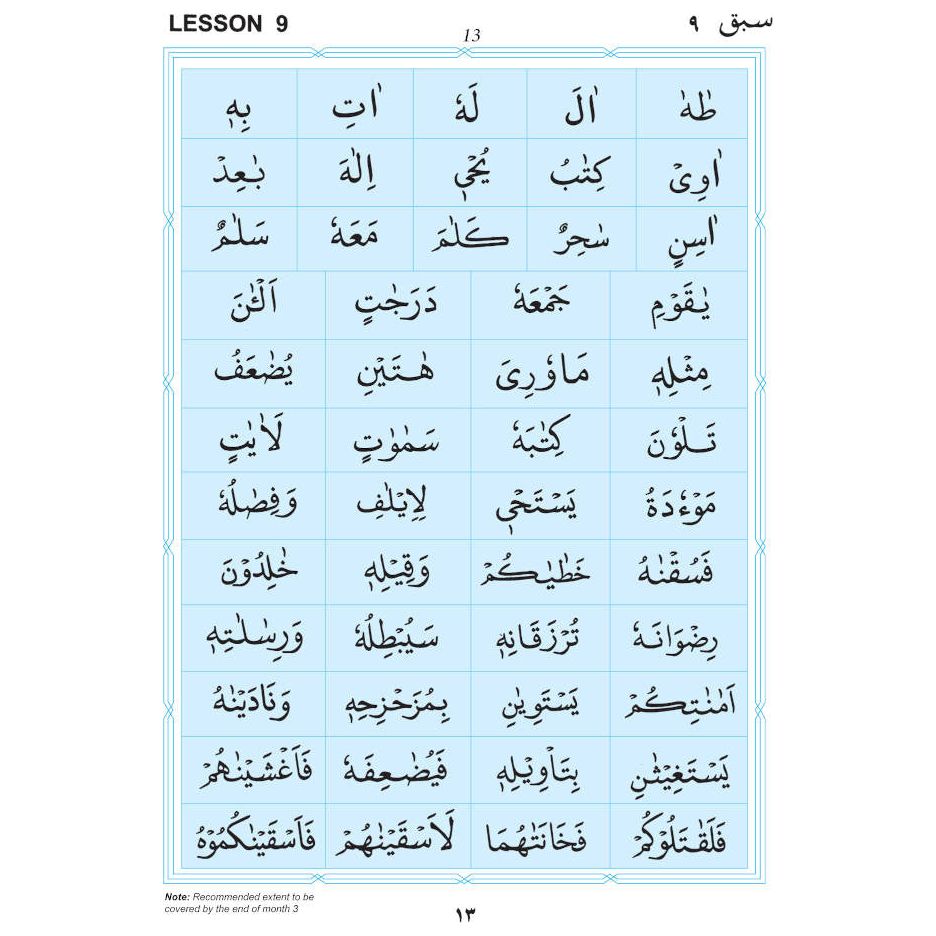 LESSON 9 سبق ٩
13
طٰهٰ اٰلَ لَهٗ اٰتِ بِهٖ
اٰوِىْ كِتٰبُ يُحْيٖ اِلٰهَ بٰعِدْ
اٰسِنٍ سٰحِرٌ كَلٰمَ مَعَهٗ سَلٰمٌ
يٰقَوْمِ جَمْعَهٗ دَرَجٰتٍ اَلْـٰٔنَ
مِثْلِهٖ مَاوٗرِىَ هٰتَيْنِ يُضٰعَفُ
تَلْوٗنَ كِتٰبَهٗ سَمٰوٰتٍ لَاٰيٰتٍ
مَوْءٗدَةُ يَسْتَحْيٖ لِاِيْلٰفِ وَفِصٰلُهٗ
فَسُقْنٰهُ خَطٰيٰكُمْ وَقِيْلِهٖ خٰلِدُوْنَ
رِضْوَانَهٗ تُرْزَقَانِهٖ سَيُبْطِلُهٗ وَرِسٰلٰتِهٖ
اَمٰنٰتِكُمْ يَسْتَوِيٰنِ بِمُزَحْزِحِهٖ وَنَادَيْنٰهُ
يَسْتَغِيْثٰنِ بِتَاْوِيْلِهٖ فَيُضٰعِفَهٗ فَاَغْشَيْنٰهُمْ
فَلَقٰتَلُوْكُمْ فَخَانَتٰهُمَا لَاَسْقَيْنٰهُمْ فَاَسْقَيْنٰكُمُوْهُ
Note: Recommended extent to be
covered by the end of month 3
١٣